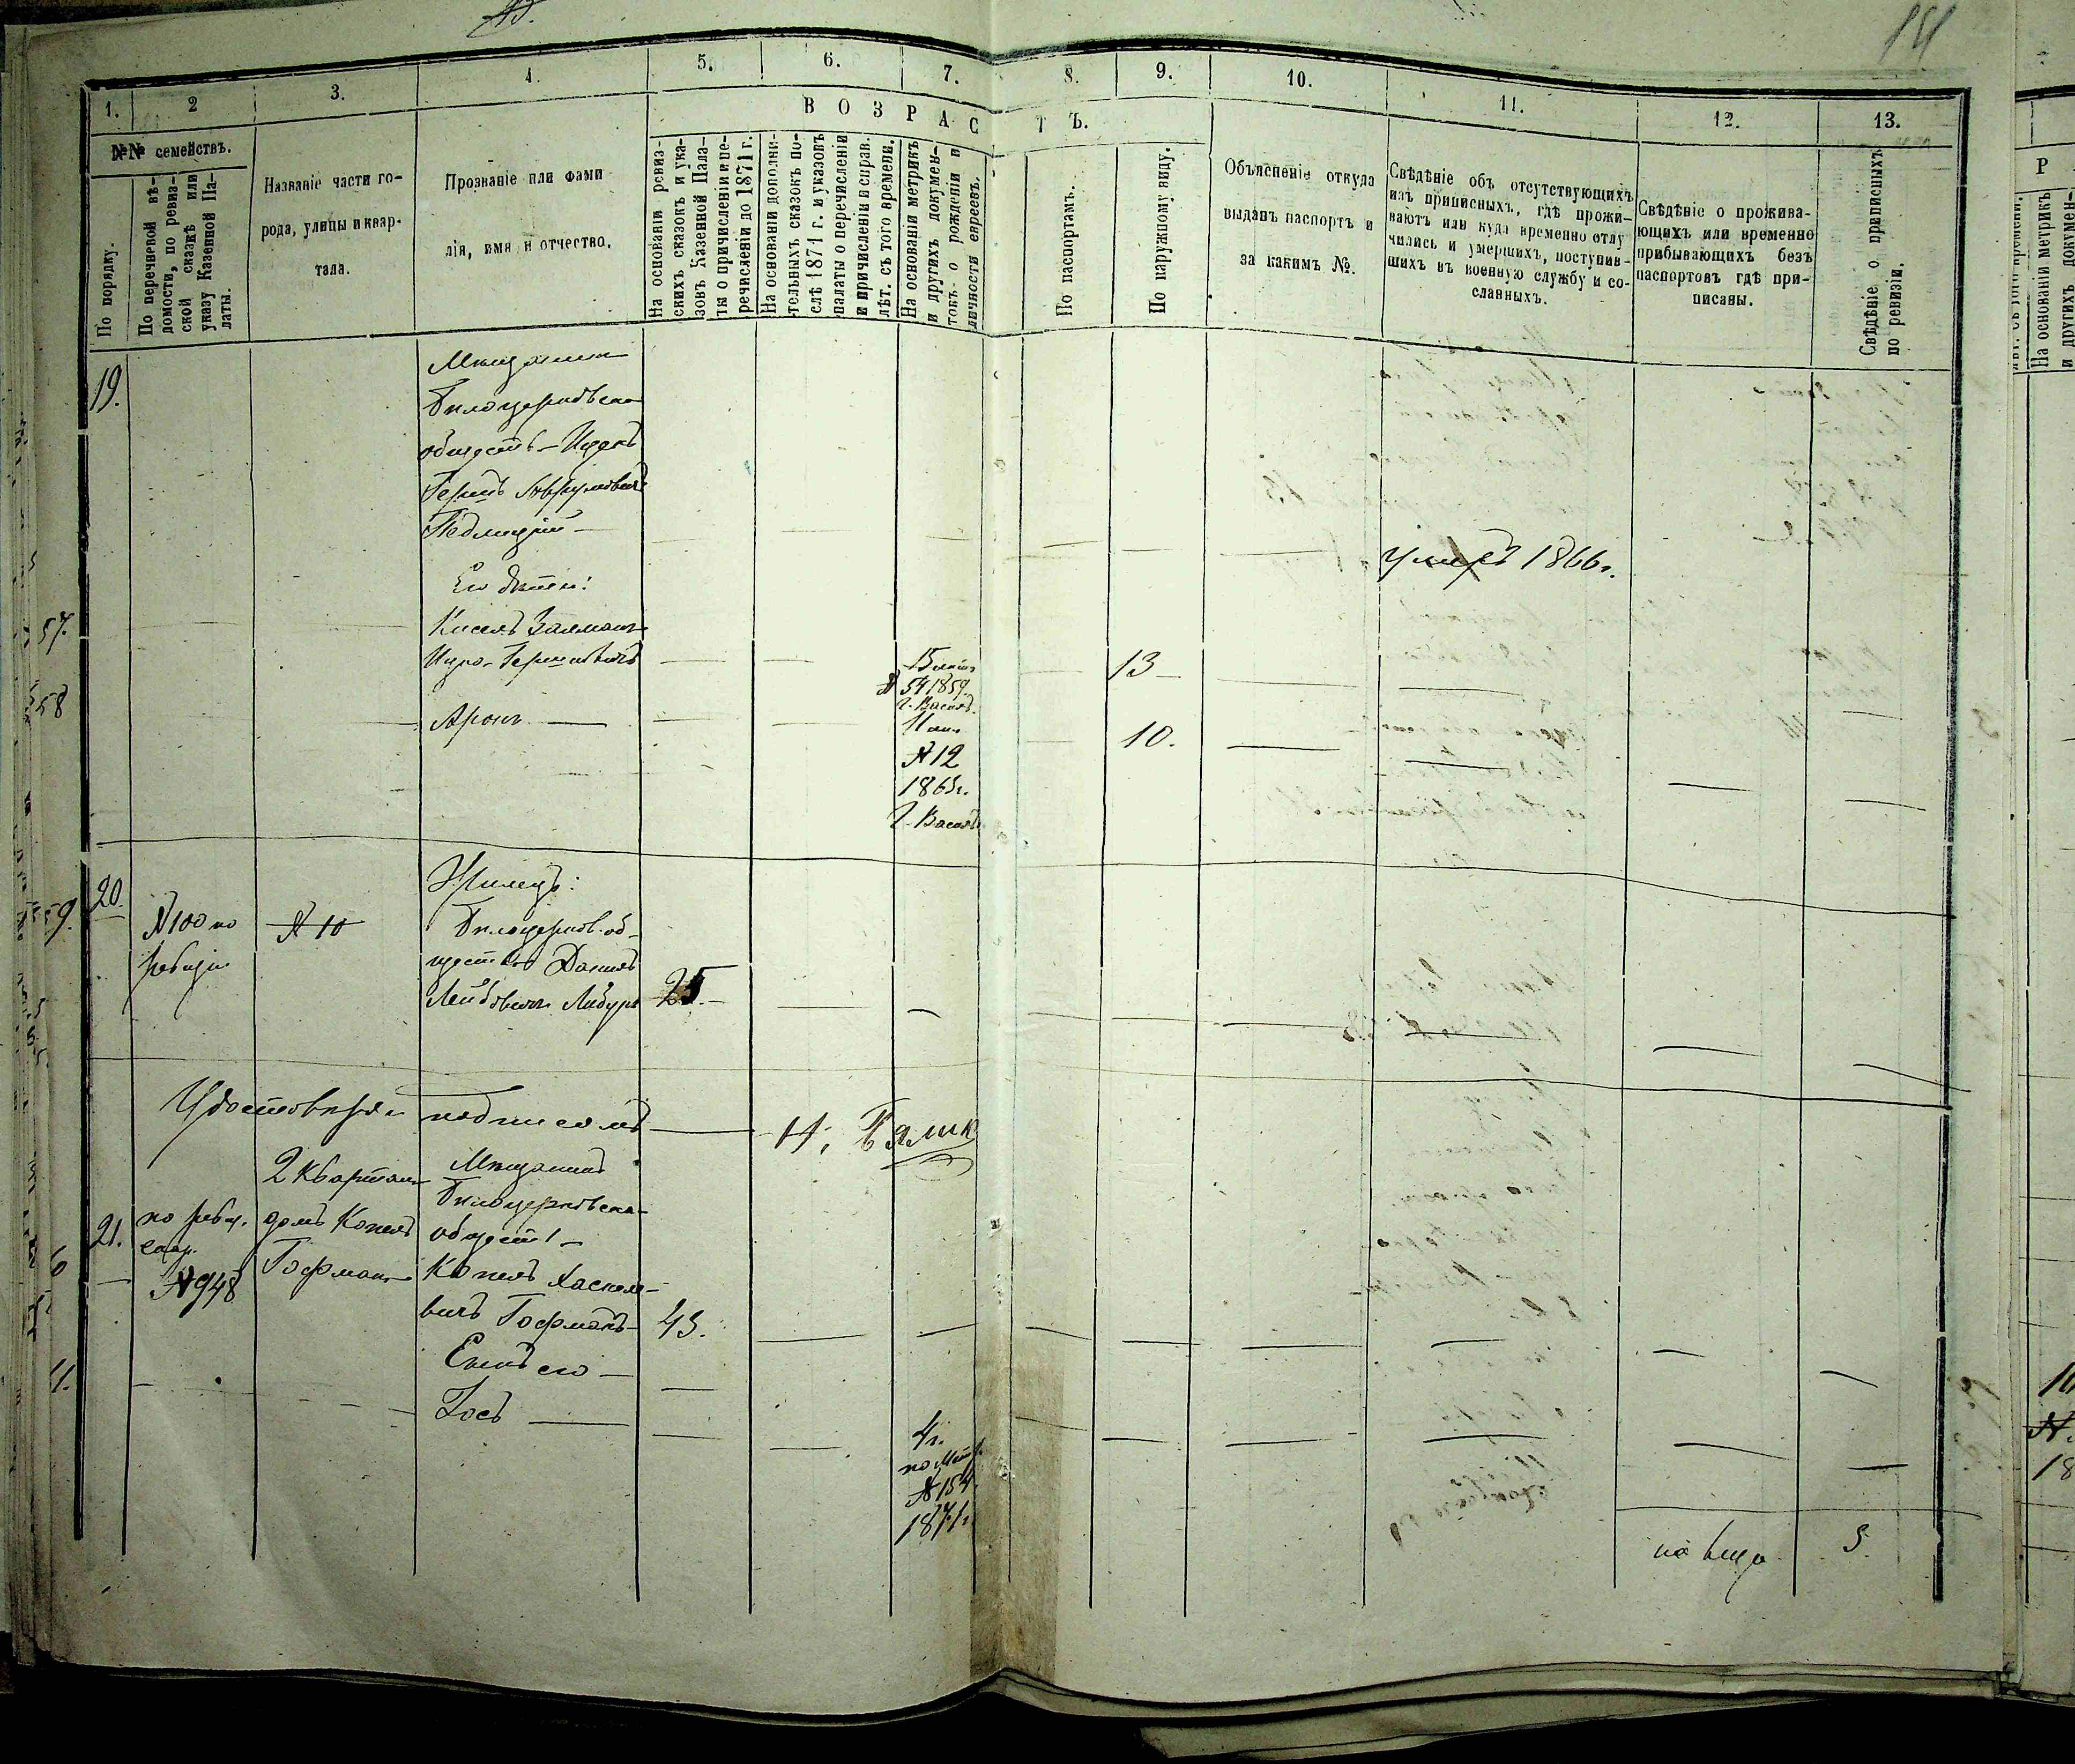 1.
2
3.
4.
5.
6.
7.
8.
9.
10.
11.
12.
13.
№№ семействъ.
По порядку.
По перечневой вѣ-
домости, по ревиз-
ской сказкѣ или
указу Казенной Па-
латы.
Названіе части го-
рода, улицы и квар-
тала.
Прозваніе или фами
лія, имя и отчество.
ВОЗРАСТЪ.
На основаніи ревиз-
скихъ сказокъ и ука-
зовъ Казенной Пала-
ты о причисленіи и пе-
речисленіи до 1871 г.
На основаніи дополни-
тельныхъ сказокъ по-
слѣ 1871 г. и указовъ
палаты о перечисленіи
и причисленіи и справ.
лѣт. съ того времени.
На основаніи метрикъ
и другихъ докумен-
товъ о рожденіи и
личности евреевъ.
По паспортамъ.
По наружному виду.
Объясненіе откуда
выданъ паспортъ и
за какимъ №.
Свѣдѣніе объ отсутствующихъ
изъ приписныхъ, гдѣ прожи-
ваютъ или куда временно отлу
чились и умершихъ, поступив-
шихъ въ военную службу и со-
сланныхъ.
Свѣдѣніе о прожива-
ющихъ или временно
прибывающихъ безъ
паспортовъ гдѣ при-
писаны.
Свѣдѣніе о приписныхъ
по ревизіи.
19.
Мѣщанинъ
Бѣлоцерковска
обществ- Ицекъ
Гершъ Аврумовичъ
умеръ 1866г.
Его дѣти:
57.
Кисель Залманъ
Ицко-Гершковичъ
15 лѣтъ
№ 54 1859
Г. Васил.
13
58
Аронъ
11 лѣт.
№ 12
1863г.
Г. Васил.
10.
20.
59.
№ 100 по
ревизіи
№ 10
Бѣлоцерков. об-
щества Данилъ
Лейбовичъ
25.
Удостовѣряю подписомъ
Н. Бялик
21.
по ревиз.
сказ.
№ 948
2 Квартал
домъ Копеля
Гофмана
Мѣщанинъ
Бѣлоцерковска-
обществ-
Копель Хаскеле-
вичъ Гофманъ
43.
Сынъ его
Іосъ
4г.
по Метр.
№ 154
1871г.
5.